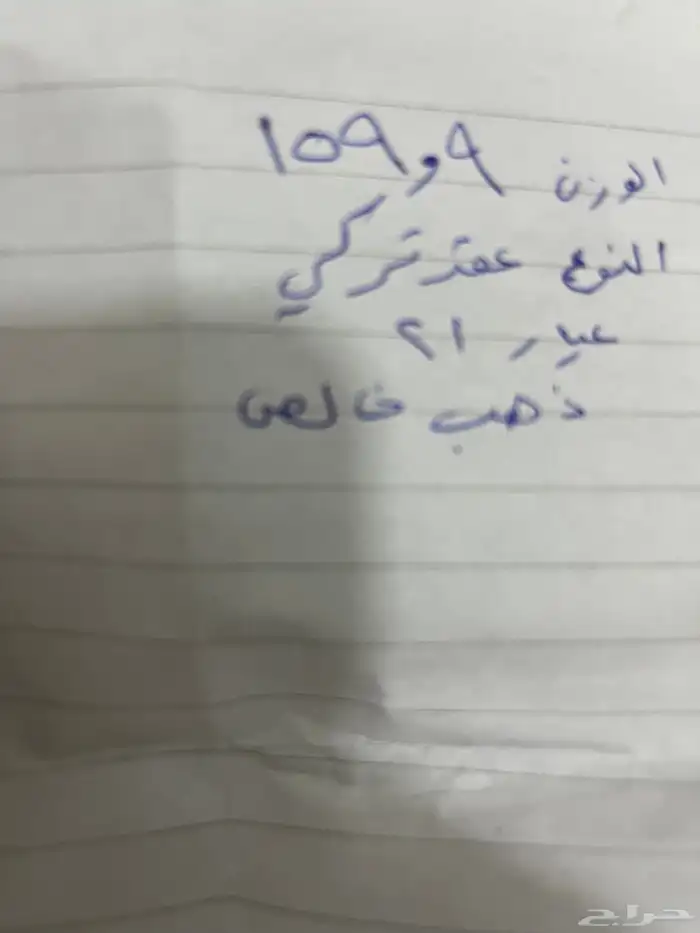 الوزن ١٥٩,٩
النوع عقد تركي
عيار ٢١
ذهب خالص
حراج